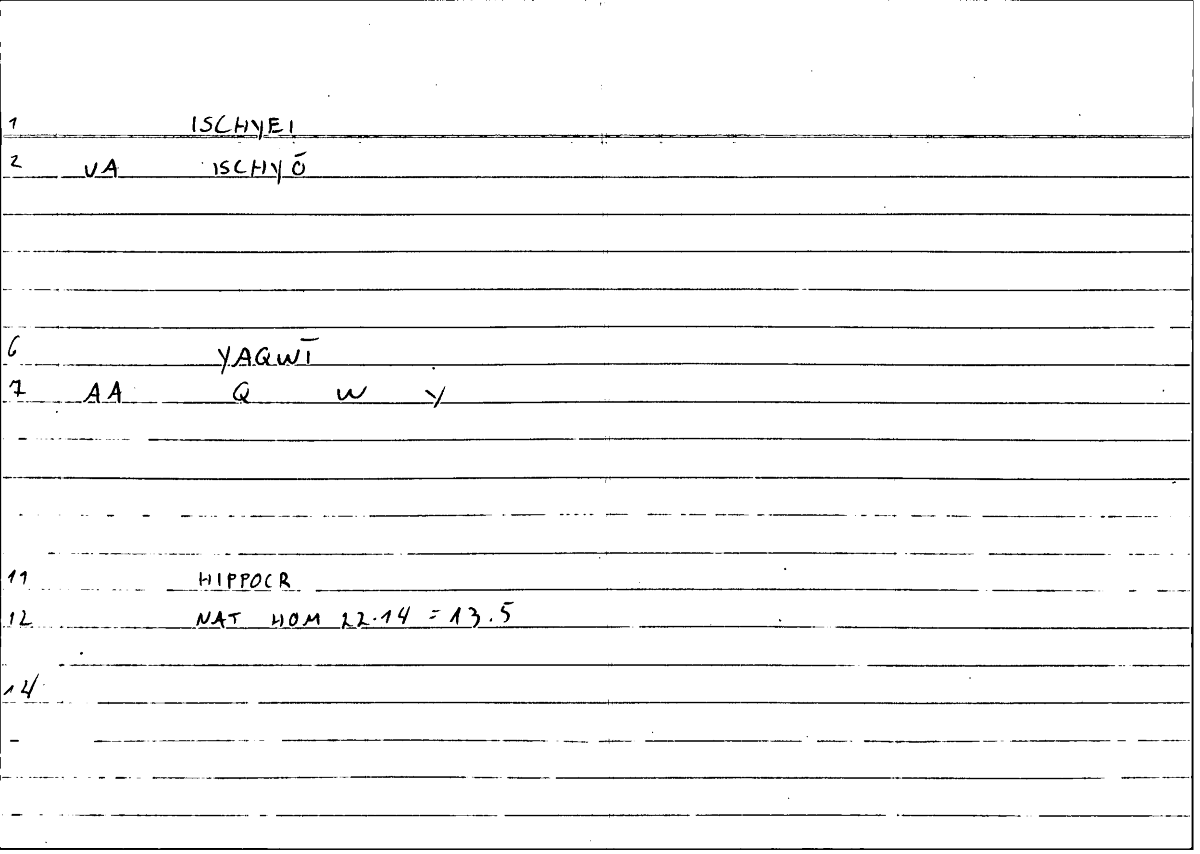 1 ISCHYEI
2 VA ISCHYŌ
6 YAQWĪ
7 AA Q W Y
11 HIPPOCR
12 NAT HOM 22.14 = 13.5
14